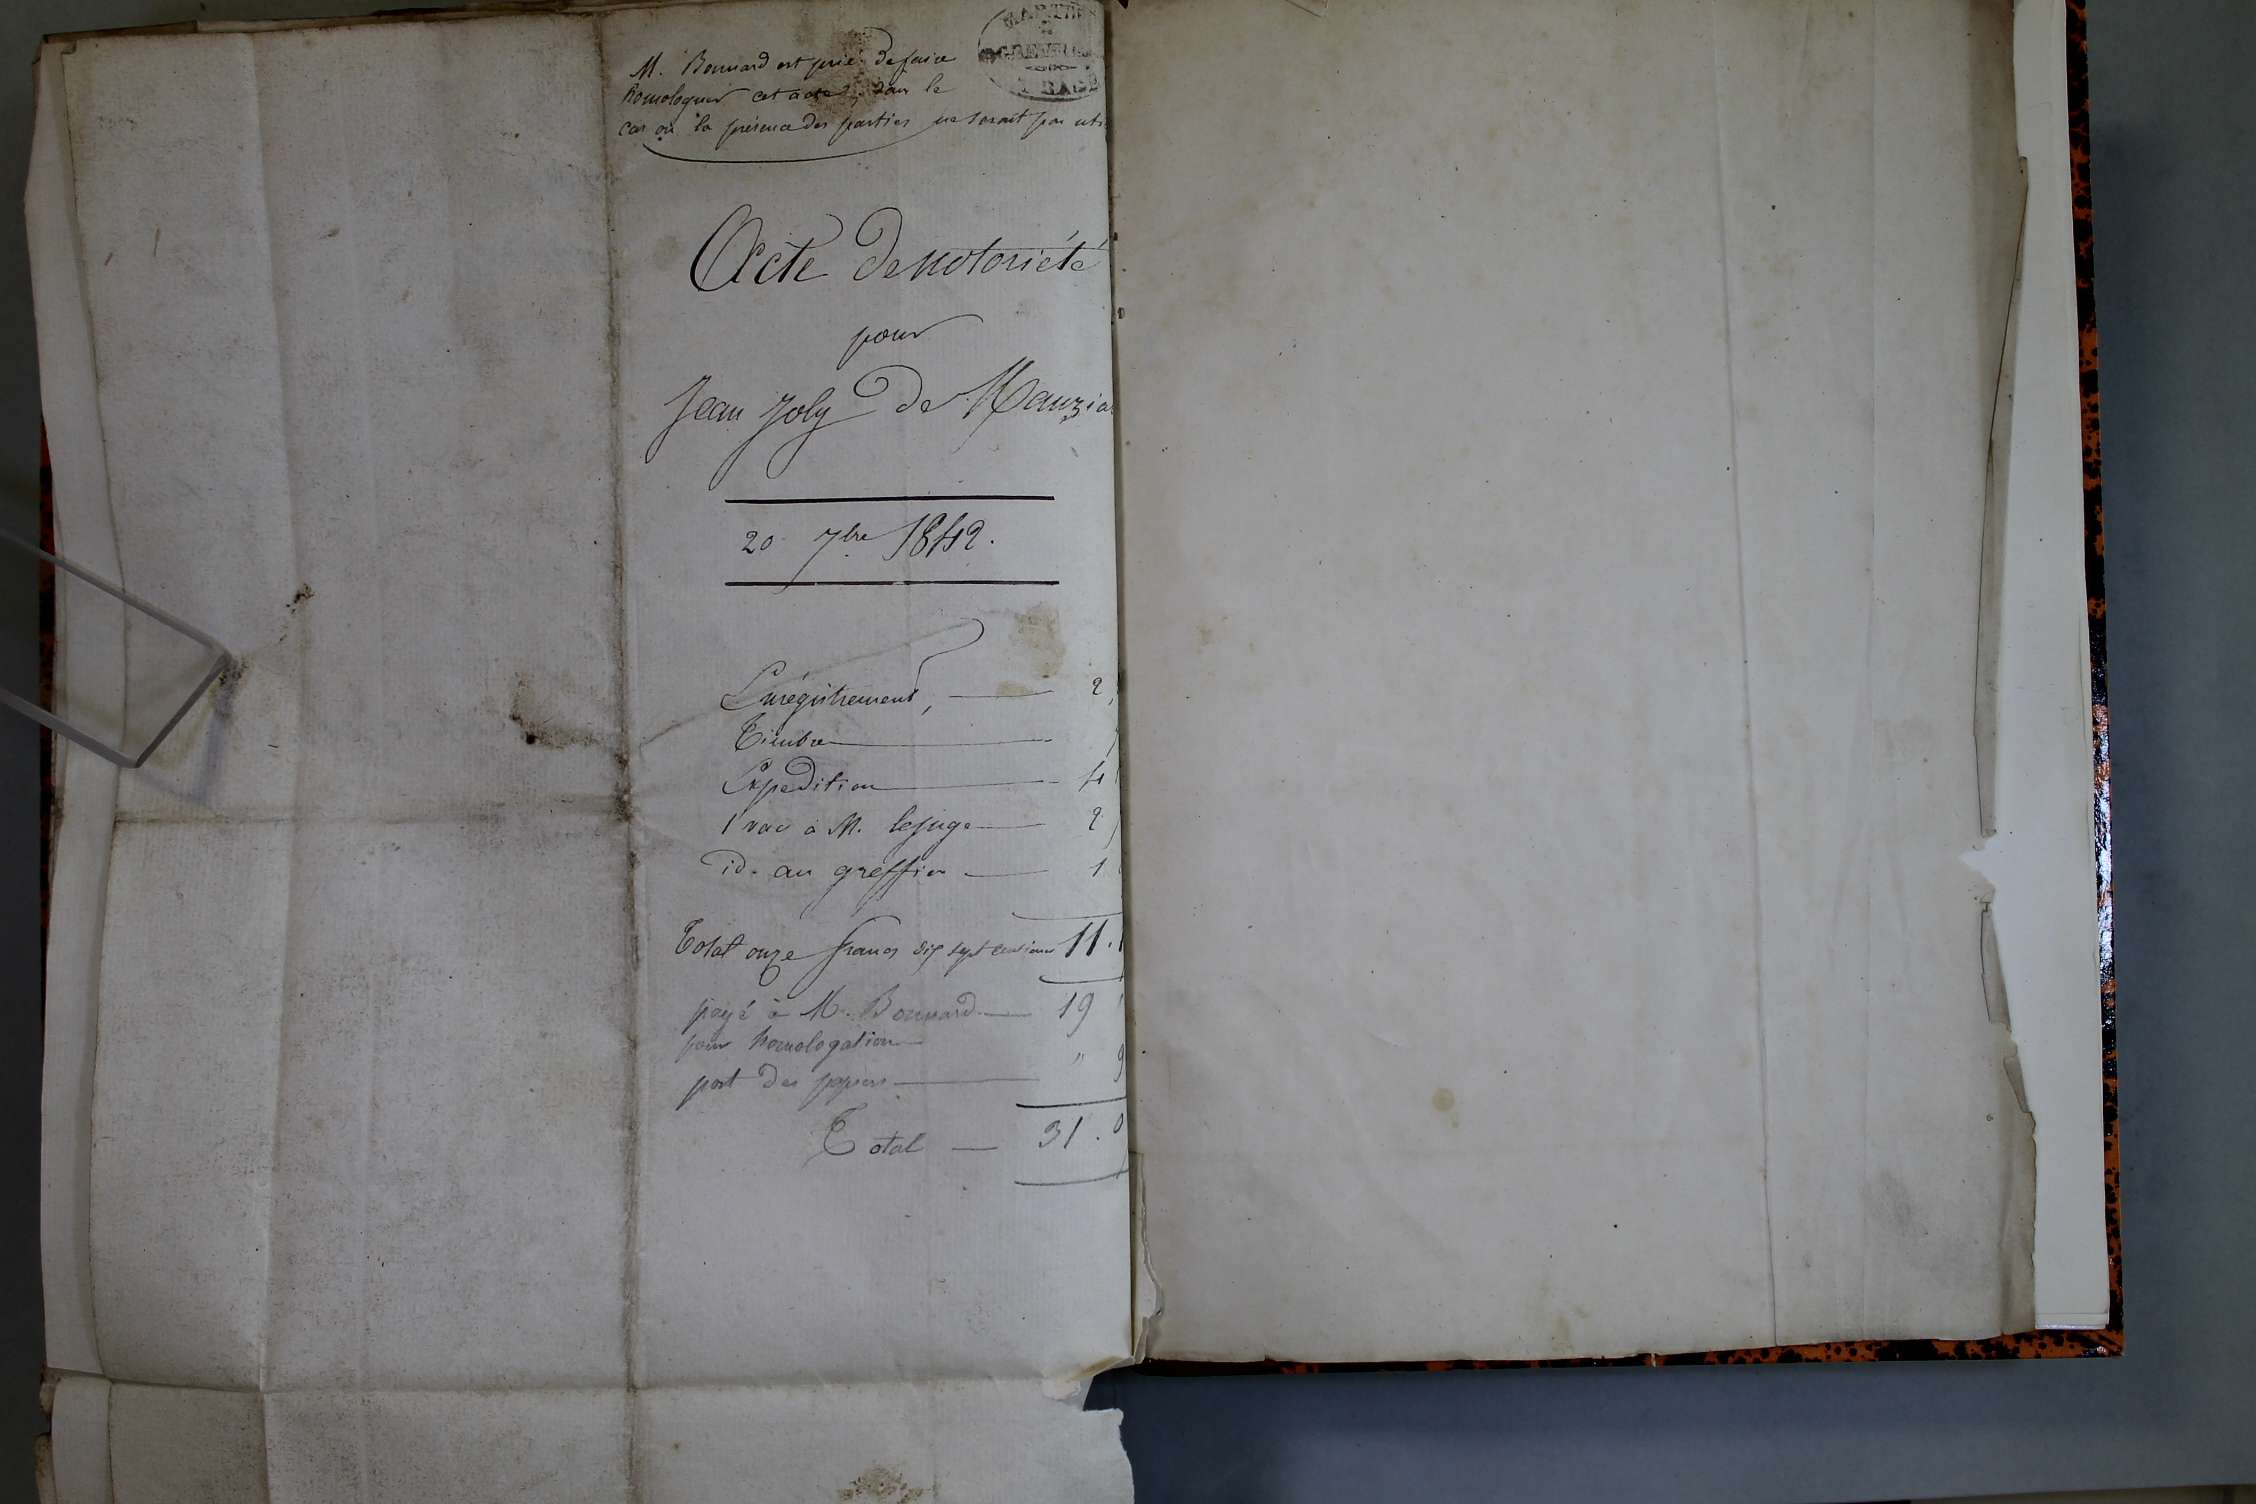 M. Bonnard est prié de faire
homologuer cet acte, dans le
cas où la présence des parties ne serait pas
Acte de notoriété
pour
Jean Joly de Mauzia
20 7bre 1842.
Enrégistrement, 2
Timbre
Expedition 4
1 vac à M. le juge 2
id. au greffier 1
Total onze francs dix sept centimes 11.1
payé à M. Bonnard 19
pour homologation
port des papiers " 9
Total 31.0